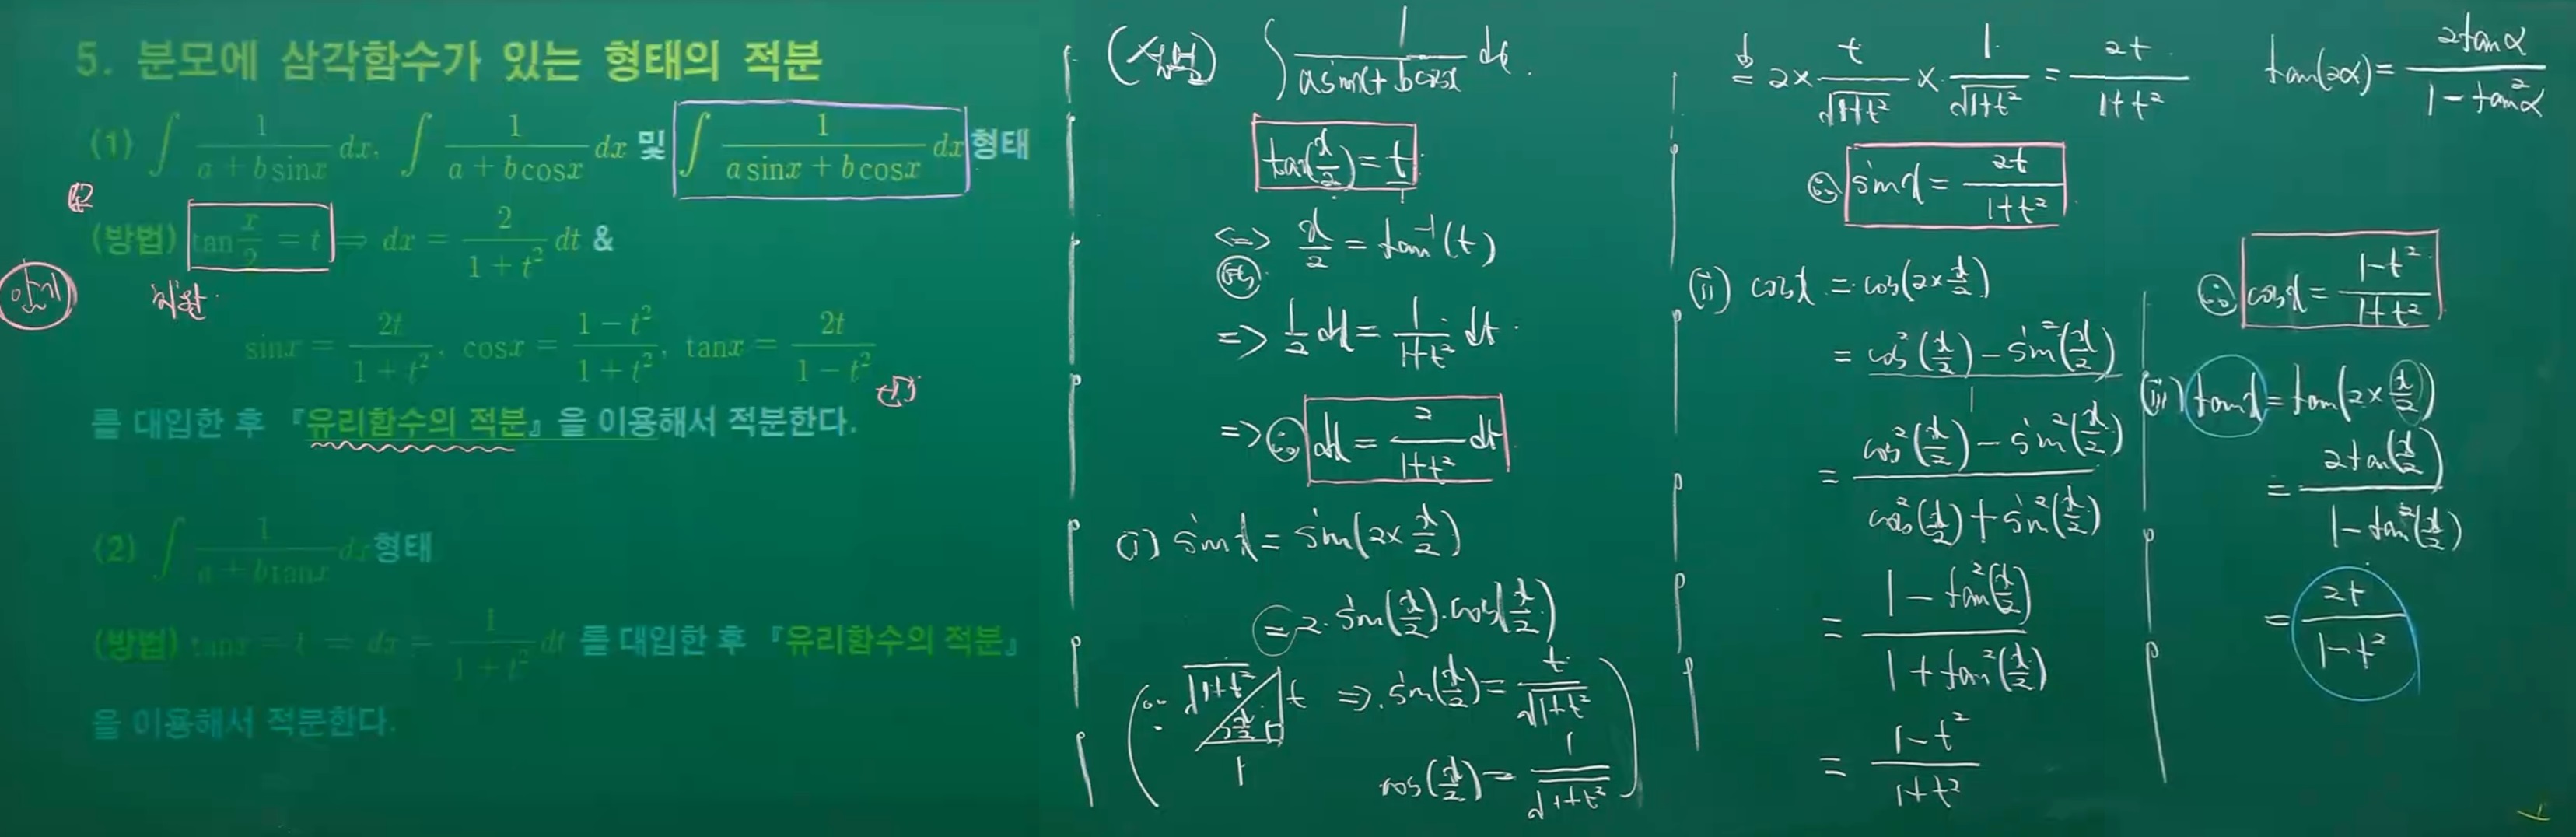 5. 분모에 삼각함수가 있는 형태의 적분
(1) ∫ 1/(a + b sinx) dx, ∫ 1/(a + b cosx) dx 및 ∫ 1/(a sinx + b cosx) dx 형태
(방법) tan x/2 = t ⇒ dx = 2/(1 + t²) dt &
암기
치환
sinx = 2t/(1 + t²), cosx = (1 − t²)/(1 + t²), tanx = 2t/(1 − t²)
를 대입한 후 『유리함수의 적분』을 이용해서 적분한다.
(2) ∫ 1/(a + b tanx) dx 형태
(방법) tanx = t ⇒ dx = 1/(1 + t²) dt 를 대입한 후 『유리함수의 적분』
을 이용해서 적분한다.
∫ 1/(a sinx + b cosx) dx.
tan(x/2) = t
<=> x/2 = tan⁻¹(t)
=> 1/2 dx = 1/(1+t²) dt
=> ∴ dx = 2/(1+t²) dt
(i) sinx = sin(2× x/2)
= 2·sin(x/2)·cos(x/2)
(∵ √(1+t²) t x/2 1 => sin(x/2) = t/√(1+t²)
cos(x/2) = 1/√(1+t²) )
= 2× t/√(1+t²) × 1/√(1+t²) = 2t/(1+t²)
∴ sinx = 2t/(1+t²)
(ii) cosx = cos(2× x/2)
= (cos²(x/2) − sin²(x/2))/1
= (cos²(x/2) − sin²(x/2))/(cos²(x/2) + sin²(x/2))
= (1 − tan²(x/2))/(1 + tan²(x/2))
= (1−t²)/(1+t²)
tan(2α) = 2tanα/(1 − tan²α)
∴ cosx = (1−t²)/(1+t²)
(iii) tanx = tan(2× x/2)
= 2tan(x/2)/(1 − tan²(x/2))
= 2t/(1−t²)